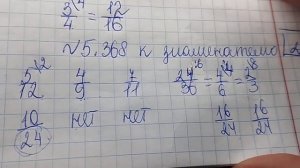 3/4 \4 = 12/16
№5.368 к знаменателю
5/12 \2 4/9 7/11 24/36 \6 = 4/6 \4 = 2/3 \8
10/24 нет нет 16/24 16/24